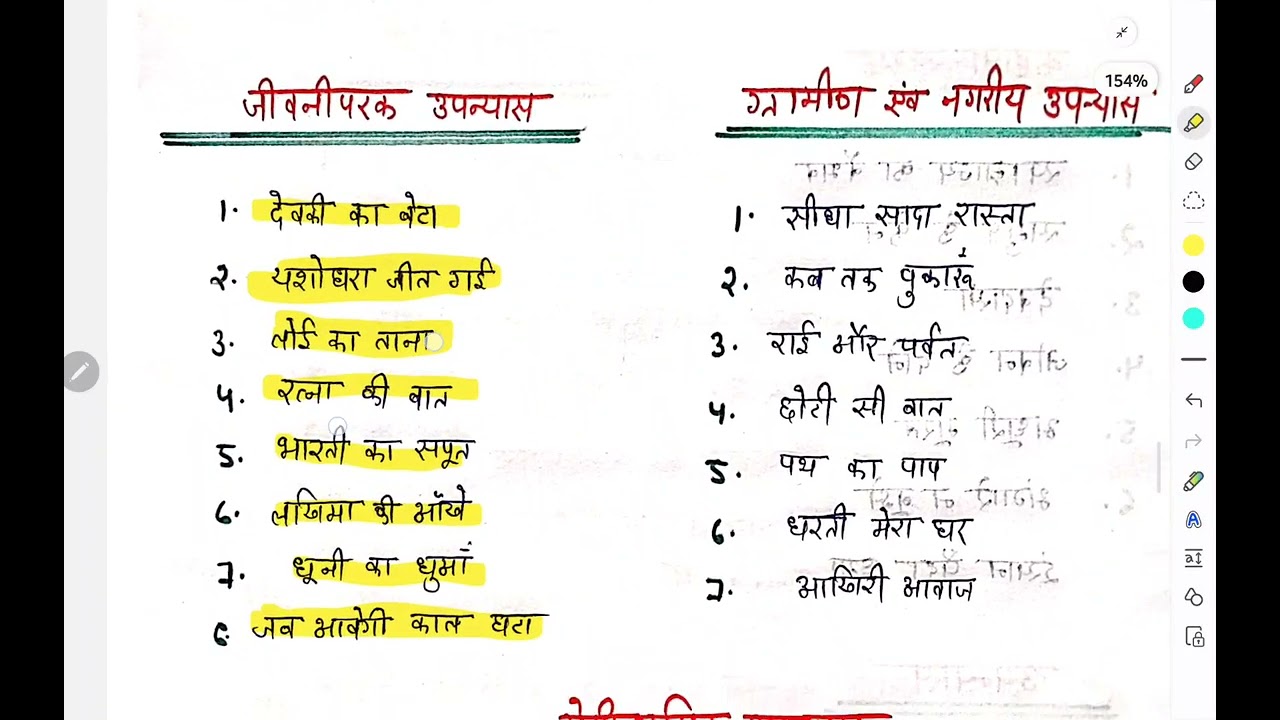 154%
जीवनीपरक उपन्यास
1. देवकी का बेटा
2. यशोधरा जीत गई
3. लोई का ताना
4. रत्ना की बात
5. भारती का सपूत
6. लखिमा की आँखे
7. धूनी का धुआँ
8. जब आवेगी काल घटा
ग्रामीण एंव नगरीय उपन्यास
1. सीधा सादा रास्ता
2. कब तक पुकारूं
3. राई और पर्वत
4. छोटी सी बात
5. पथ का पाप
6. धरती मेरा घर
7. आखिरी आवाज